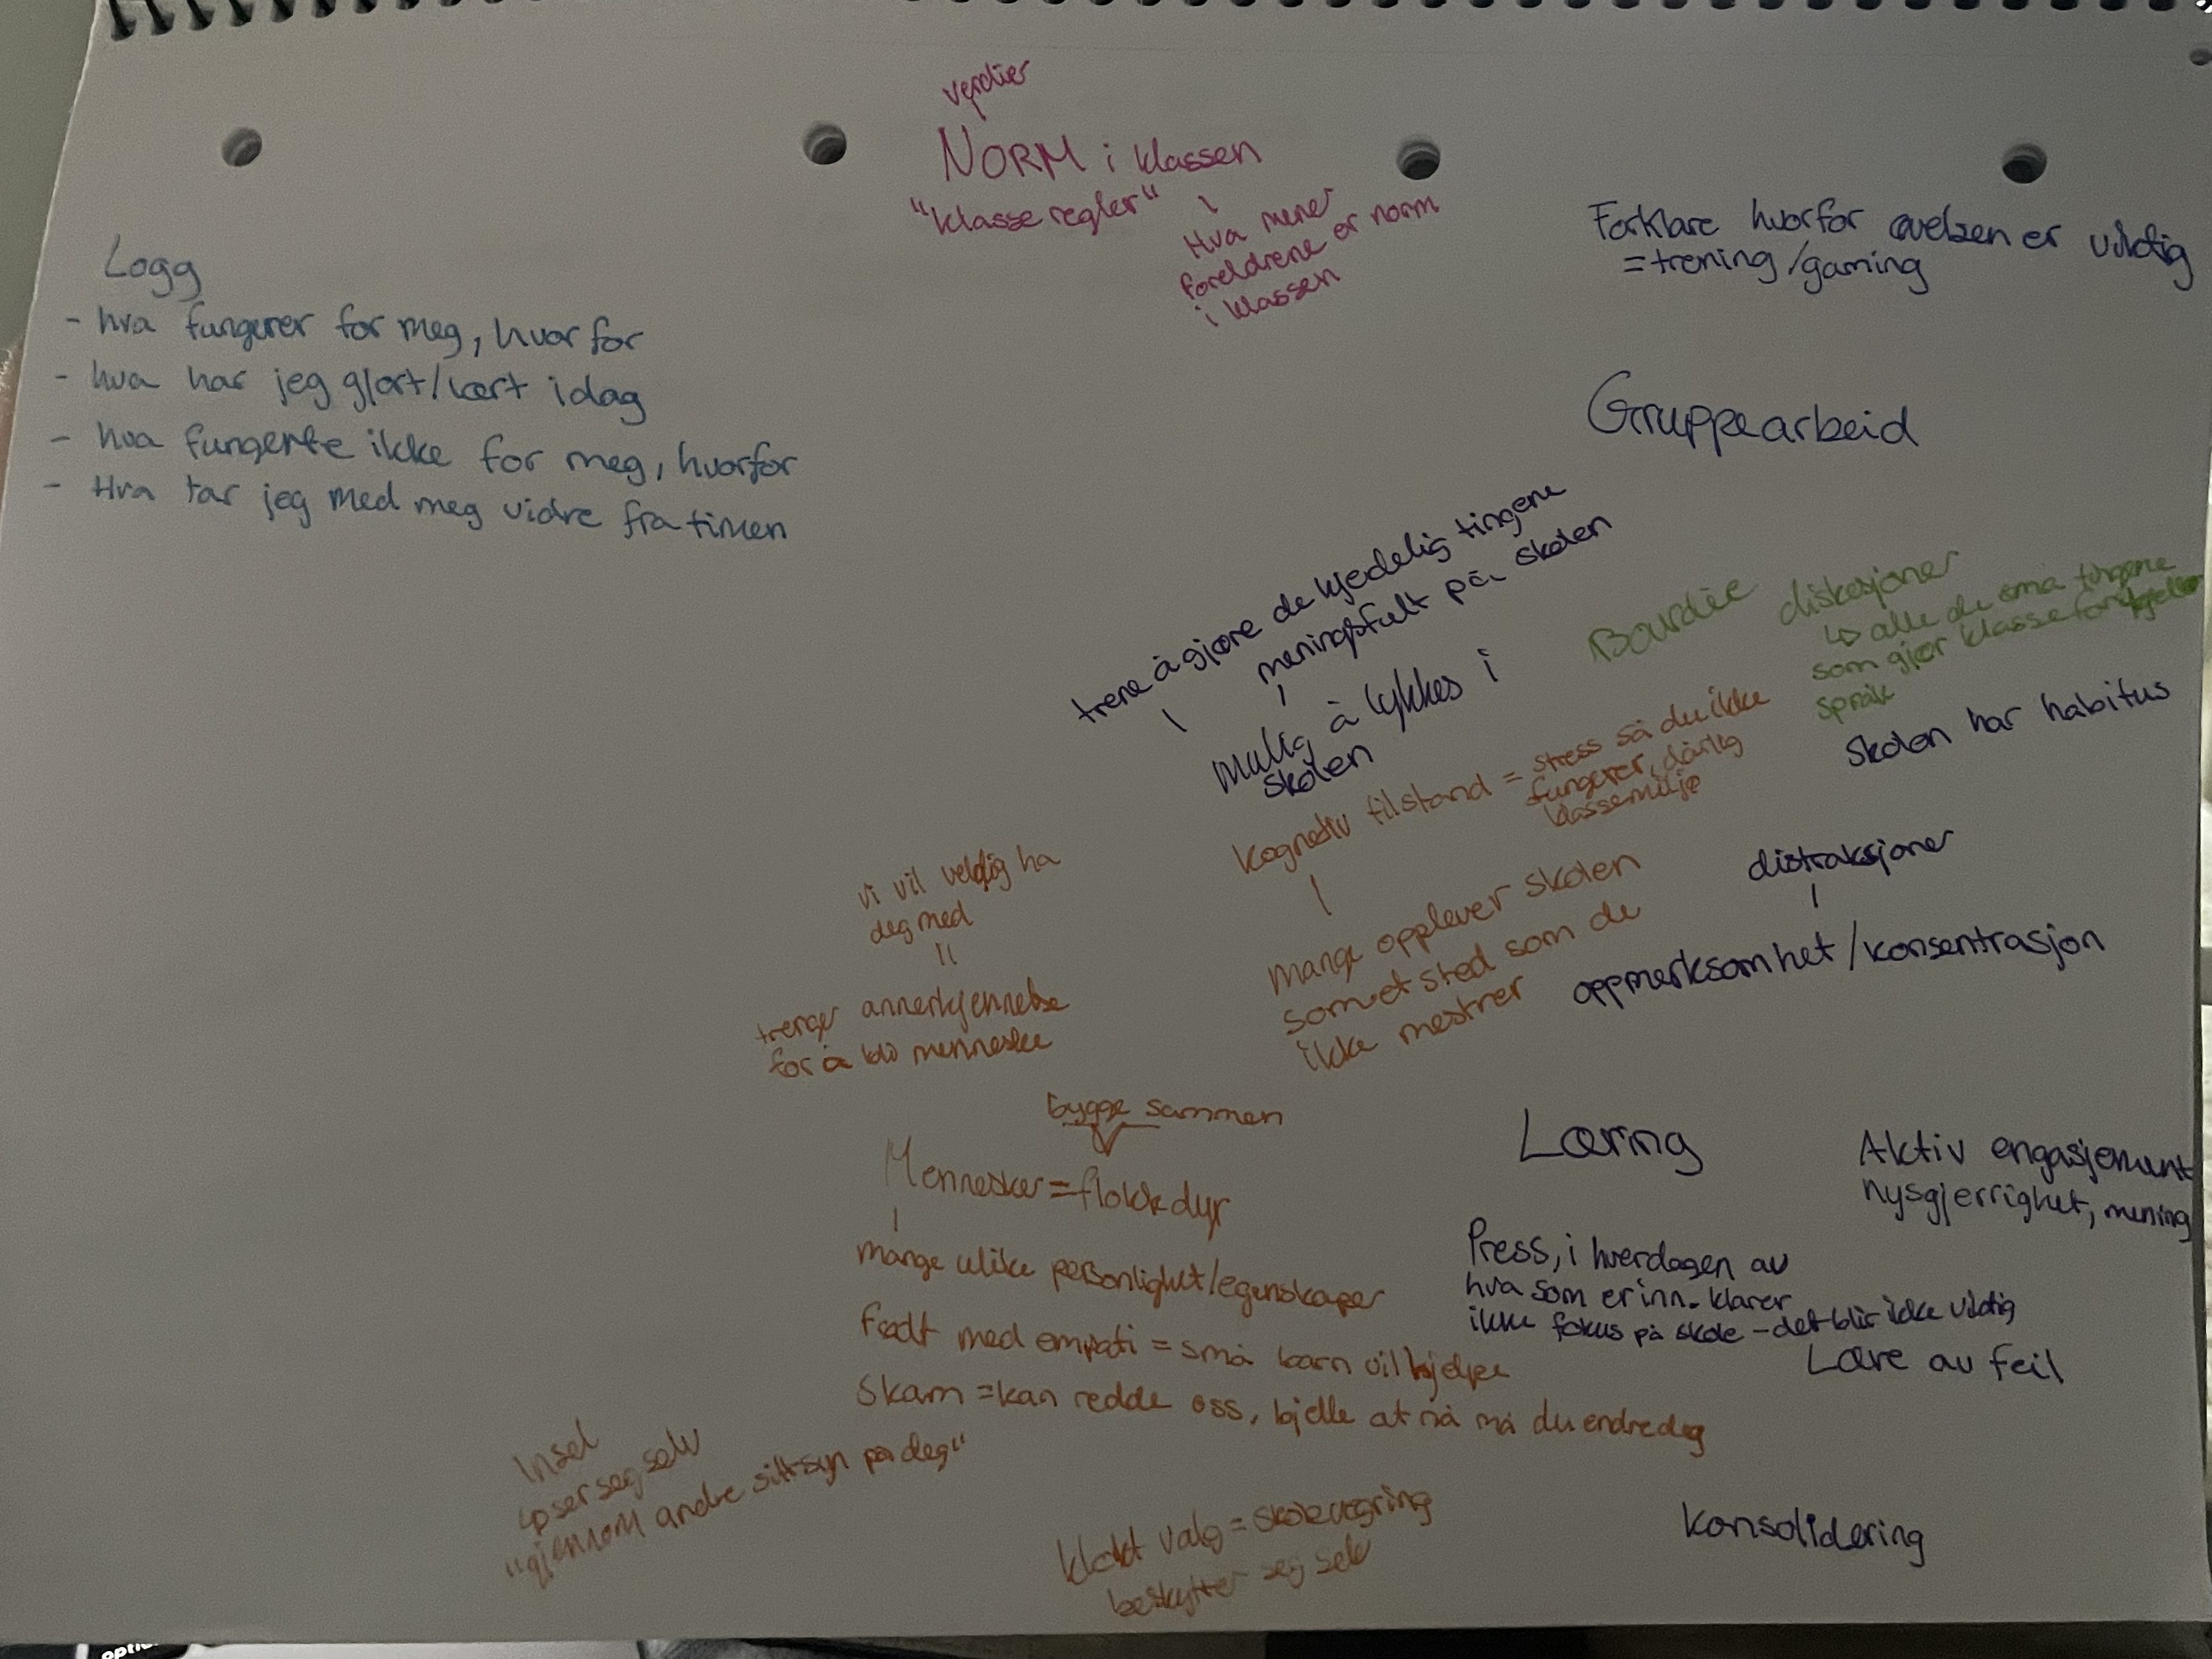 verdier
NORM i klassen
"klasse regler"
Hva mener
foreldrene er norm
i klassen
Logg
- hva fungerer for meg, hvorfor
- hva har jeg gjort/lært idag
- hva fungerte ikke for meg, hvorfor
- Hva tar jeg med meg vidre fra timen
Forklare hvorfor øvelsen er viktig
= trening/gaming
Gruppearbeid
trene å gjøre de kjedelig tingene
meningsfult på skolen
mulig å lykkes i
skolen
diskusjoner
↳ alle de små tingene
som gjør klasse
språk
Skolen har habitus
Kognetiv tilstand = stress så du ikke
fungerer, dårlig
klassemiljø
mange opplever skolen
som et sted som de
ikke mestrer
distraksjoner
oppmerksomhet/konsentrasjon
vi vil veldig ha
deg med
=
trenger annerkjennelse
for å bli menneske
bygge sammen
Mennesker = flokkdyr
mange ulike personlighet/egenskaper
født med empati = små barn vil hjelpe
Skam = kan redde oss, bjelle at nå må du endre deg
Læring
Aktiv engasjement
nysgjerrighet, mening
Press, i hverdagen av
hva som er inn. klarer
ikke fokus på skole - det blir ikke viktig
Lære av feil
Insel
↳ ser seg selv
"gjennom andre sitt syn på deg"
klokt valg = skolevegring
beskytter seg selv
Konsolidering